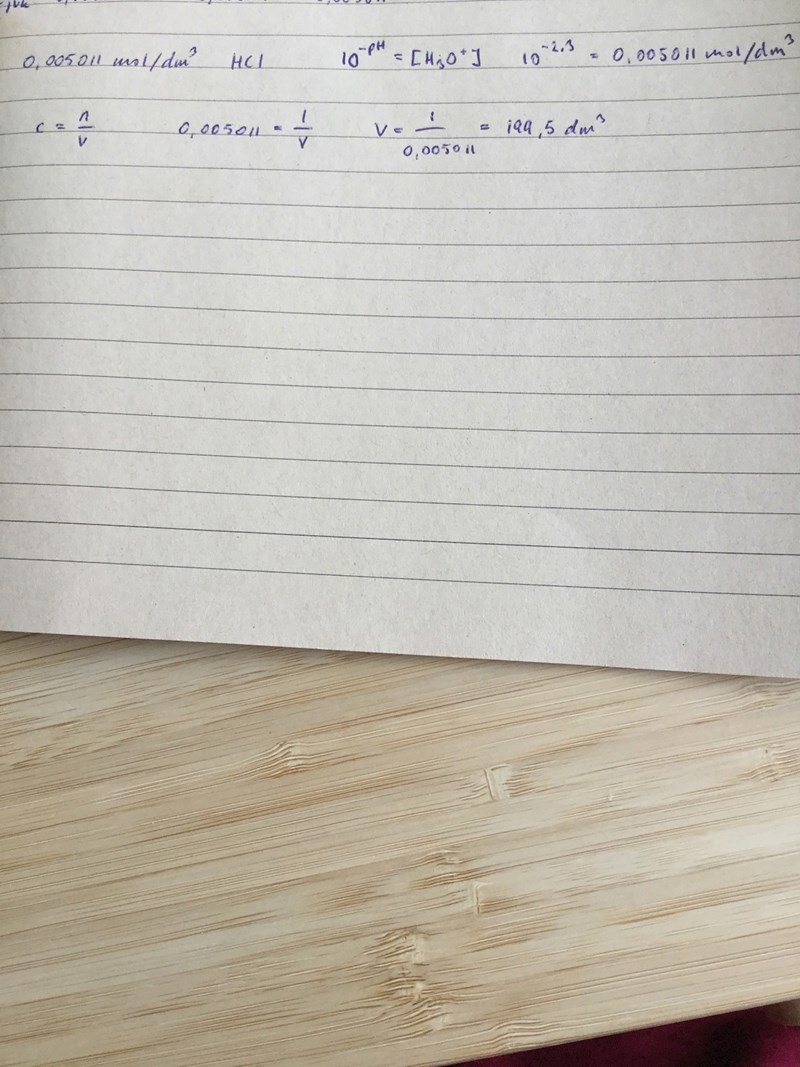 0,005011 mol/dm³ HCl 10^-pH = [H₃O⁺] 10^-2.3 = 0,005011 mol/dm³
c = n/V 0,005011 = 1/V V = 1/0,005011 = 199,5 dm³